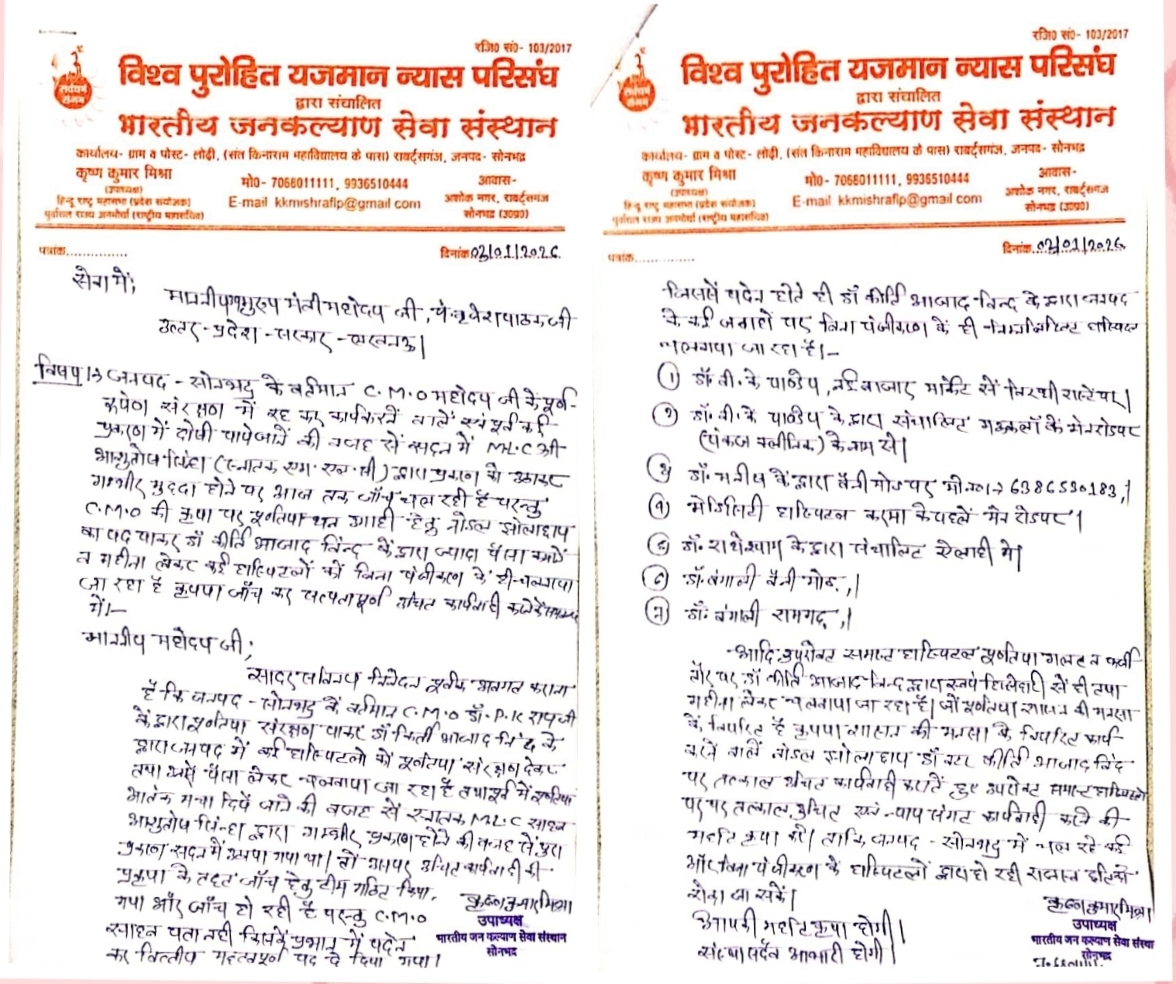 रजि0 सं0- 103/2017
सर्वधर्म
संगम
विश्व पुरोहित यजमान न्यास परिसंघ
द्वारा संचालित
भारतीय जनकल्याण सेवा संस्थान
कार्यालय- ग्राम व पोस्ट- लोढ़ी, (संत किनाराम महाविद्यालय के पास) रावर्ट्सगंज, जनपद- सोनभद्र
कृष्ण कुमार मिश्रा
(उपाध्यक्ष)
हिन्दु राष्ट्र महासभा (प्रदेश संयोजक)
पूर्वांचल राज्य जनमोर्चा (राष्ट्रीय महासचिव)
मो0- 7068011111, 9936510444
E-mail kkmishraflp@gmail.com
आवास-
अशोक नगर, रावर्ट्सगंज
सोनभद्र (उ0प्र0)
पत्रांक...............
दिनांक 03/01/2026
सेवा में,
माननीय उपमुख्य मंत्री महोदय जी, पं. बृजेश पाठक जी
उत्तर-प्रदेश-सरकार-लखनऊ।
विषय:- जनपद-सोनभद्र के वर्तमान C.M.O महोदय जी के पूर्ण-
रूपेण संरक्षण में रह कर कार्य करने वाले एवं पूर्व कई
प्रकरण में दोषी पाये जाने की वजह से सदन में MLC श्री
आशुतोष सिन्हा (स्नातक एम.एल.सी) द्वारा प्रकरण को उठाकर
गम्भीर मुद्दा होने पर आज तक जाँच चल रही है परन्तु
C.M.O की कृपा पर पूर्णतया धन उगाही हेतु नोडल झोलाछाप
का पद पाकर डॉ कीर्ति आजाद बिन्द के द्वारा ज्यादा पैसा कमाने
व महीना लेकर कई हास्पिटलों को बिना पंजीकरण के ही चलवाया
जा रहा है कृपया जाँच कर सत्यतापूर्ण उचित कार्यवाही करने के सम्बन्ध
में।-
माननीय महोदय जी,
सादर सविनय निवेदन पूर्वक अवगत कराना
है कि जनपद-सोनभद्र के वर्तमान C.M.O डॉ. P.K राय जी
के द्वारा पूर्णतया संरक्षण पाकर डॉ किर्ती आजाद बिन्द के
द्वारा जनपद में कई हास्पिटलो को पूर्णतया संरक्षण देकर
तथा उनसे पैसा लेकर चलवाया जा रहा है तथा पूर्व में पूर्णतया
आतंक मचा दिये जाने की वजह से स्नातक MLC साहब
आशुतोष सिन्हा द्वारा गम्भीर प्रकरण होने की वजह से पुरा
प्रकरण सदन में उठाया गया था। तो उसपर उचित कार्यवाही की
प्रकृया के तहत जाँच हेतु टीम गठित किया
गया और जाँच हो रही है परन्तु C.M.O
साहब पता नही किसके प्रभाव में पदेन
कर वित्तीय महत्वपूर्ण पद दे दिया गया।
कृष्ण कुमार मिश्रा
उपाध्यक्ष
भारतीय जन कल्याण सेवा संस्थान
सोनभद्र
रजि0 सं0- 103/2017
सर्वधर्म
संगम
विश्व पुरोहित यजमान न्यास परिसंघ
द्वारा संचालित
भारतीय जनकल्याण सेवा संस्थान
कार्यालय- ग्राम व पोस्ट- लोढ़ी, (संत किनाराम महाविद्यालय के पास) रावर्ट्सगंज, जनपद- सोनभद्र
कृष्ण कुमार मिश्रा
(उपाध्यक्ष)
हिन्दु राष्ट्र महासभा (प्रदेश संयोजक)
पूर्वांचल राज्य जनमोर्चा (राष्ट्रीय महासचिव)
मो0- 7068011111, 9936510444
E-mail kkmishraflp@gmail.com
आवास-
अशोक नगर, रावर्ट्सगंज
सोनभद्र (उ0प्र0)
पत्रांक...............
दिनांक 03/01/2026
जिसमें पदेन होते ही डॉ कीर्ति आजाद बिन्द के द्वारा जनपद
के कई जगहों पर बिना पंजीकरण के ही निम्नलिखित हास्पिटल
चलवाया जा रहा है।-
① डॉ. वी. के पाण्डेय, नई बाजार मार्केट से तिरछी रास्ते पर।
② डॉ. वी. के पाण्डेय के द्वारा संचालित मेन रोड पर
(पंकज क्लीनिक) के नाम से।
③ डॉ. मनीष के द्वारा वैनी मोड पर मो0न0-> 6386530183,।
④ हास्पिटल करमा के पहले मेन रोड पर।
⑤ डॉ. राधेश्याम के द्वारा संचालित में।
⑥ डॉ. बंगाली वैनी मोड,।
⑦ डॉ. बंगाली रामगढ,।
आदि उपरोक्त समस्त हास्पिटल पूर्णतया गलत व फर्जी
तौर पर डॉ कीर्ति आजाद बिन्द द्वारा स्वयं हिस्सेदारी से ही तथा
महीना लेकर चलवाया जा रहा है। जो पूर्णतया शासन की मनसा
के विपरित है कृपया शासन की मनसा के विपरित कार्य
करने वाले नोडल झोला छाप डॉक्टर कीर्ति आजाद बिंद
पर तत्काल उचित कार्यवाही करते हुए उपरोक्त समस्त हास्पिटलो
पर तत्काल उचित एवं न्याय संगत कार्यवाही करने की
महति कृपा करें। ताकि जनपद-सोनभद्र में चल रहे कई
और बिना पंजीकरण के हास्पिटलों द्वारा हो रही राजस्व क्षति को
रोका जा सके।
आपकी महति कृपा होगी।
संस्था सदैव आभारी होगी।
कृष्ण कुमार मिश्रा
उपाध्यक्ष
भारतीय जन कल्याण सेवा संस्था
सोनभद्र